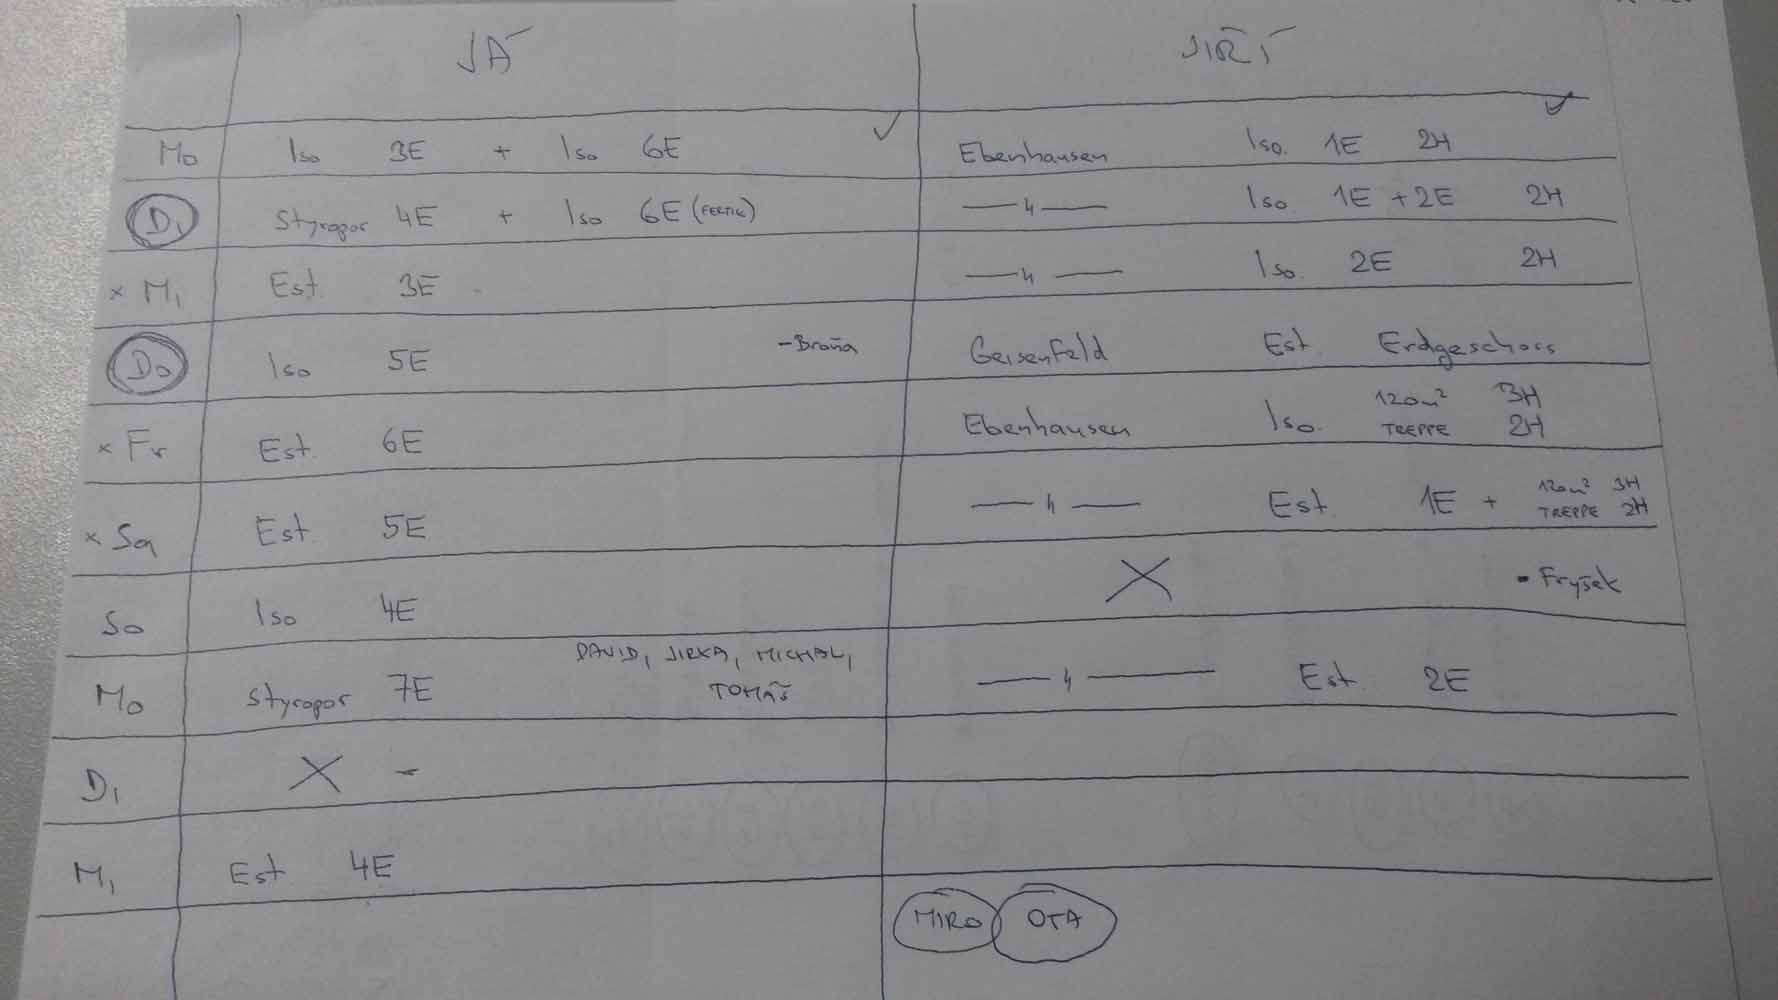 JÁ JIŘÍ
Mo Iso 3E + Iso 6E ✓ Ebenhausen Iso. 1E 2H ✓
Di Styropor 4E + Iso 6E (FERTIG) —〃— Iso 1E + 2E 2H
x Mi Est. 3E —〃— Iso. 2E 2H
Do Iso 5E - Broňa Geisenfeld Est Erdgeschoss
x Fr Est. 6E Ebenhausen Iso. 120m² 3H
TREPPE 2H
x Sa Est. 5E —〃— Est. 1E + 120m² 3H
TREPPE 2H
So Iso 4E X - Fryšek
Mo Styropor 7E DAVID, JIRKA, MICHAL,
TOMÁŠ —〃— Est. 2E
Di X -
Mi Est 4E
MIRO OTA